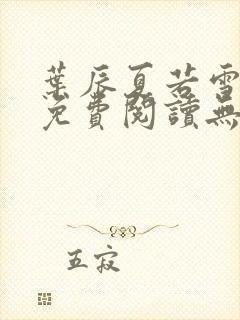 葉辰夏若雪
免費閱讀無
五寂